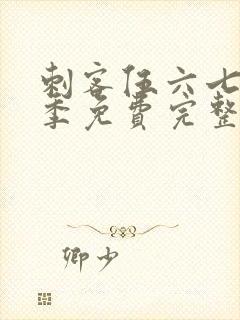 刺客伍六七
季免費完整
卿少